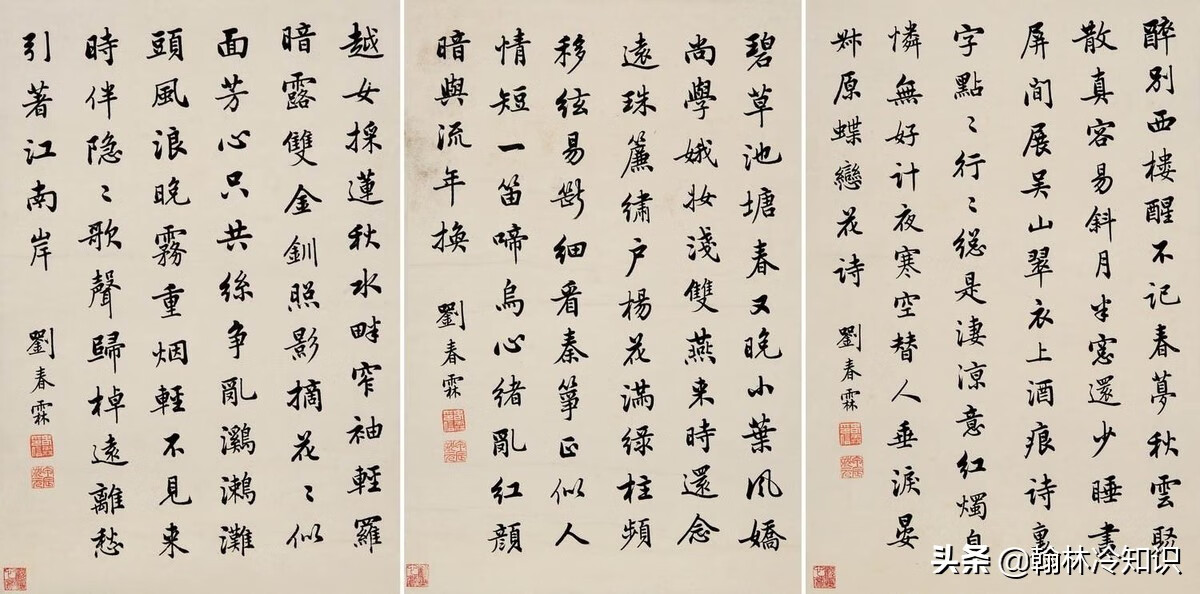 醉別西楼醒不記春夢秋雲聚
散真容易斜月半窓還少睡畫
屏间展吴山翠衣上酒痕诗裏
字點〻行〻總是淒凉意紅燭自
憐無好計夜寒空替人垂淚晏
叔原蝶戀花詩 劉春霖
碧草池塘春又晚小葉风嬌
尚學娥妝淺雙燕来時還念
遠珠簾繡户楊花滿緑柱頻
移絃易斷細看秦箏正似人
情短一笛啼烏心緒亂紅顏
暗與流年換 劉春霖
越女採蓮秋水畔窄袖輕羅
暗露雙金釧照影摘花〻似
面芳心只共絲争亂鸂鶒灘
頭風浪晚霧重烟輕不見来
時伴隐〻歌聲歸棹遠離愁
引著江南岸 劉春霖
头条 @翰林冷知识